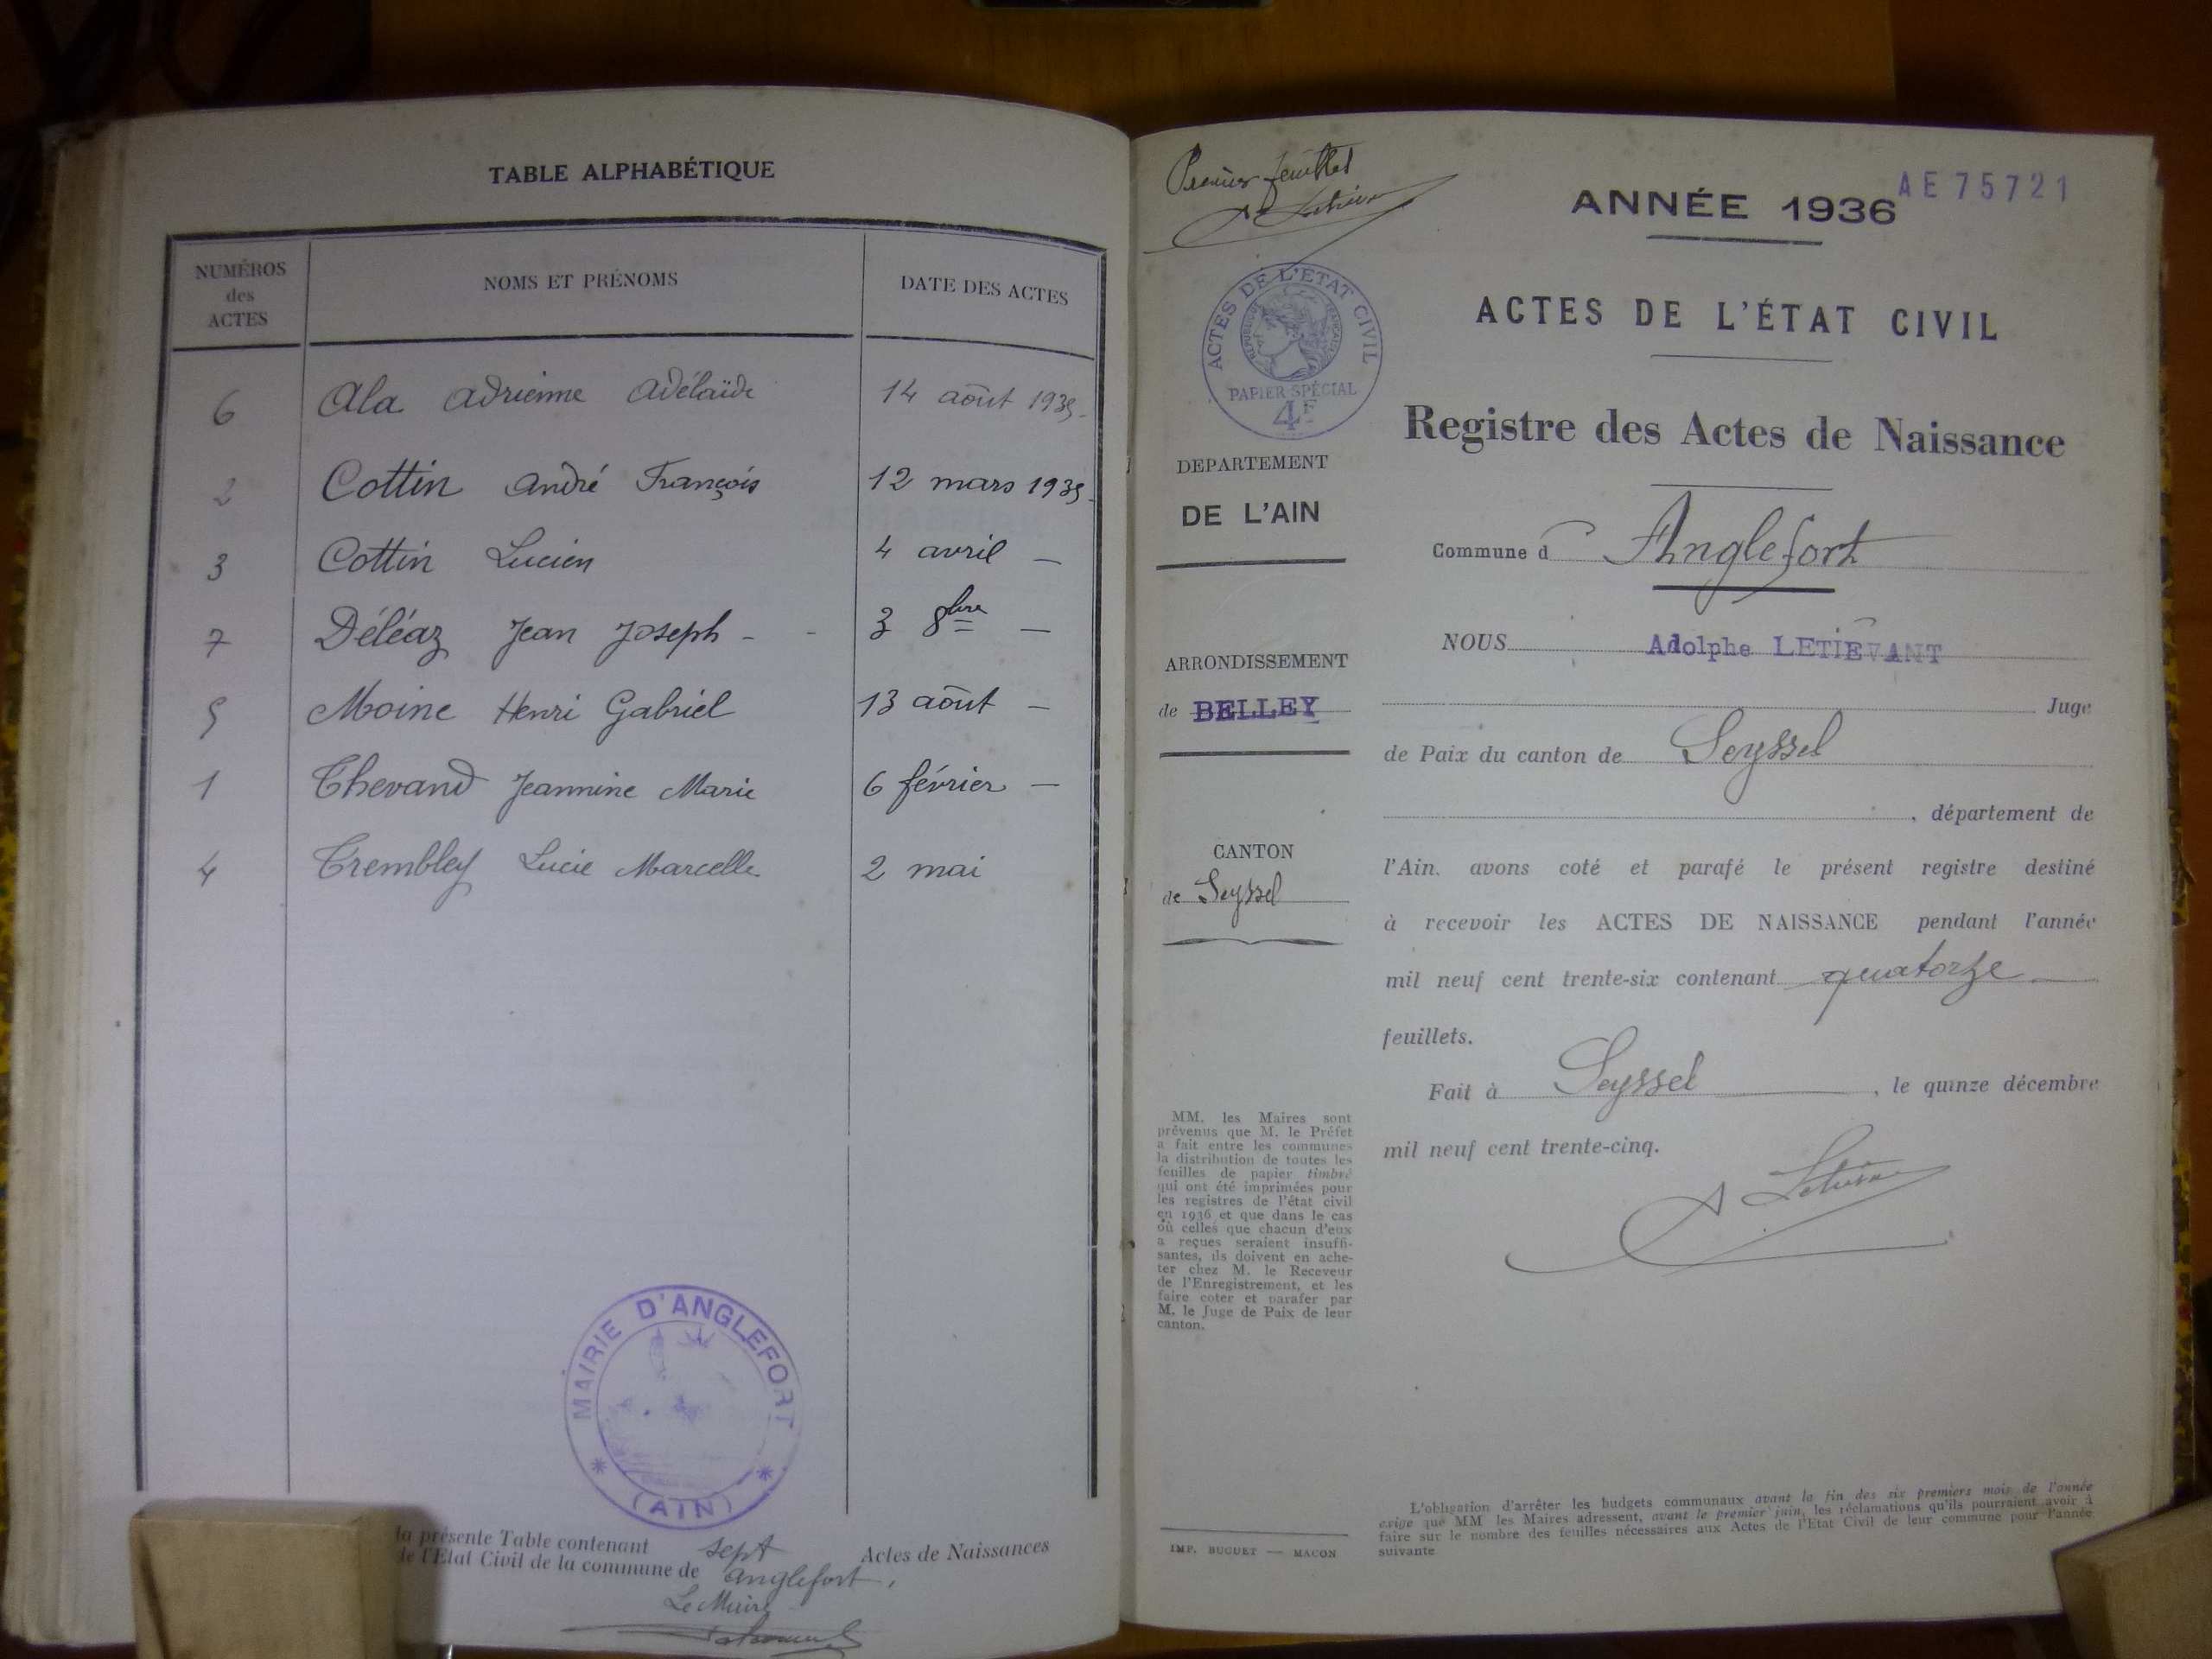 TABLE ALPHABÉTIQUE
NUMÉROS des ACTES NOMS ET PRÉNOMS DATE DES ACTES
6 Ala Adrienne Adélaïde 14 août 1935.
2 Cottin André François 12 mars 1935.
3 Cottin Lucien 4 avril —
7 Déléaz Jean Joseph - - 3 8bre —
5 Moine Henri Gabriel 13 août —
1 Thevand Jeannine Marie 6 février —
4 Trembley Lucie Marcelle 2 mai
MAIRIE D'ANGLEFORT
* (AIN) *
la présente Table contenant sept Actes de Naissances
de l'Etat Civil de la commune de Anglefort,
Le Maire
Premier feuillet
AE75721
ANNÉE 1936
ACTES DE L'ÉTAT CIVIL
ACTES DE L'ETAT CIVIL
REPUBLIQUE FRANÇAISE
PAPIER SPÉCIAL
4F
Registre des Actes de Naissance
DEPARTEMENT
DE L'AIN
Commune d Anglefort
ARRONDISSEMENT
de BELLEY
CANTON
de Seyssel
NOUS Adolphe LETIEVANT
Juge
de Paix du canton de Seyssel
, département de
l'Ain. avons coté et parafé le présent registre destiné
à recevoir les ACTES DE NAISSANCE pendant l'année
mil neuf cent trente-six contenant quatorze
feuillets.
Fait à Seyssel , le quinze décembre
mil neuf cent trente-cinq.
MM. les Maires sont
prévenus que M. le Préfet
a fait entre les communes
la distribution de toutes les
feuilles de papier timbré
qui ont été imprimées pour
les registres de l'état civil
en 1936 et que dans le cas
où celles que chacun d'eux
a reçues seraient insuffi-
santes, ils doivent en ache-
ter chez M. le Receveur
de l'Enregistrement, et les
faire coter et parafer par
M. le Juge de Paix de leur
canton.
IMP. BUGUET — MACON
L'obligation d'arrêter les budgets communaux avant la fin des six premiers mois de l'année
exige que MM les Maires adressent, avant le premier juin, les réclamations qu'ils pourraient avoir à
faire sur le nombre des feuilles nécessaires aux Actes de l'Etat Civil de leur commune pour l'année
suivante